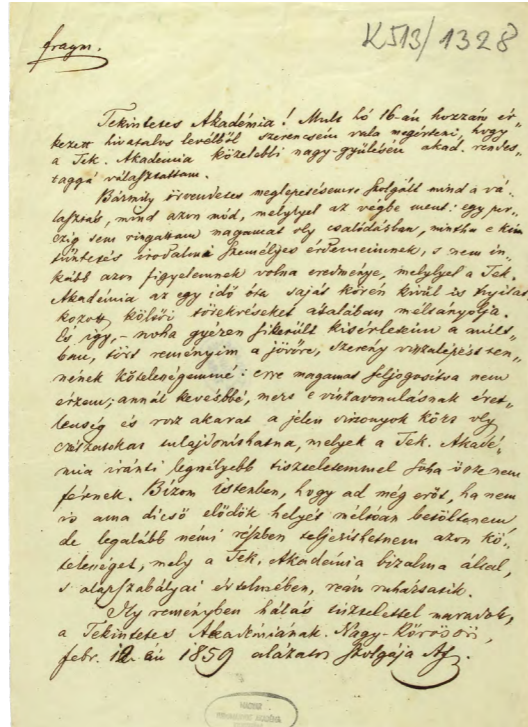 fragm.
K513/1328
Tekintetes Akadémia! Mult hó 16-án hozzám ér-
kezett hivatalos levélből szerencsém vala megérteni, hogy
a Tek. Akademia közelebbi nagy-gyülésén akad. rendes
taggá választattam.
Bármily örvendetes meglepetésemre szolgált mind a vá-
lasztás, mind azon mód, melylyel az végbe ment: egy per-
czig sem ringattam magamat oly csalódásban, mintha e kitün
tüntetés irodalmi személyes érdemeimnek, s nem in-
kább azon figyelemnek volna eredménye, melylyel a Tek.
Akadémia az egy idő óta saját körén kivül is nyilat
kozott költői törekvéseket általában méltányolja.
És igy, – noha gyéren sikerült kisérleteim a mult-
ban, tört reményim a jövőre, szerény visszalépést ten-
nének kötelességemmé: erre magamat feljogosítva nem
érzem; annál kevésbbé, mert e visszavonulásnak éret-
lenség és rosz akarat a jelen viszonyok közt oly
czélzatokat tulajdoníthatna, melyek a Tek. Akadé-
mia iránti legmélyebb tiszteletemmel soha össze nem
férnek. Bízom istenben, hogy ad még erőt, ha nem
is ama dicső elődök helyét méltóan betöltenem,
de legalább némi részben teljesíthetnem azon kö-
telességet, mely a Tek. Akadémia bizalma által,
s alapszabályai értelmében, reám ruháztatik.
Ily reményben hálás tisztelettel maradok,
a Tekintetes Akadémiának. Nagy-Kőrösön,
febr. 12-én 1859 alázatos szolgája AJ.